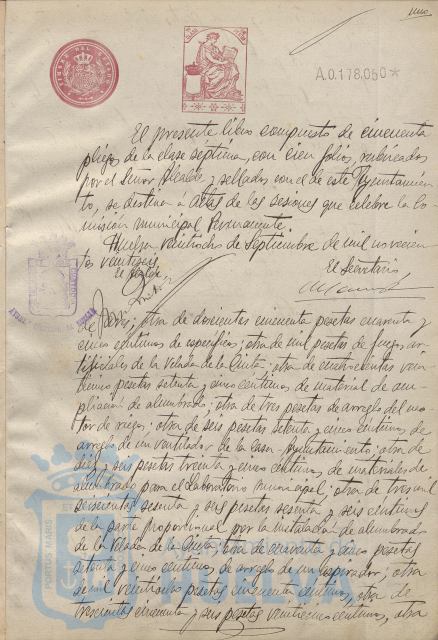 uno
A.0.178.050*
El presente libro compuesto de cincuenta
pliegos de la clase séptima, con cien folios, rubricados
por el Señor Alcalde y sellados con el de este Ayuntamien-
to, se destina a Actas de las sesiones que celebre la Co-
misión Municipal Permanente.
Huelva veintiocho de Septiembre de mil novecien-
tos veintiseis
El Alcalde
El Secretario
otra de doscientas cincuenta pesetas cuarenta y
cinco centimos de especificos; otra de mil pesetas de fuegos ar-
tificiales de la Velada de la Cinta; otra de cuatrocientas vein-
pesetas setenta y cinco centimos de material de am-
pliación de alumbrado; otra de tres pesetas de arreglo del mo-
tor de riego; otra de seis pesetas setenta y cinco centimos, de
arreglo de un ventilador de la Casa Ayuntamiento; otra de
diez y seis pesetas treinta y cinco centimos, de materiales de
alumbrado para el Laboratorio municipal; otra de tres mil
seiscientas sesenta y seis pesetas sesenta y seis centimos
de la parte proporcional por la instalación de alumbrado
de la Velada de la Cinta; otra de cuarenta y cinco pesetas
setenta y cinco centimos, de arreglo de un aspirador; otra
de mil veinticinco pesetas cincuenta centimos, otra de
trescientas cincuenta y seis pesetas veinticinco centimos, otra
PORTUS MARIS
HUELVA